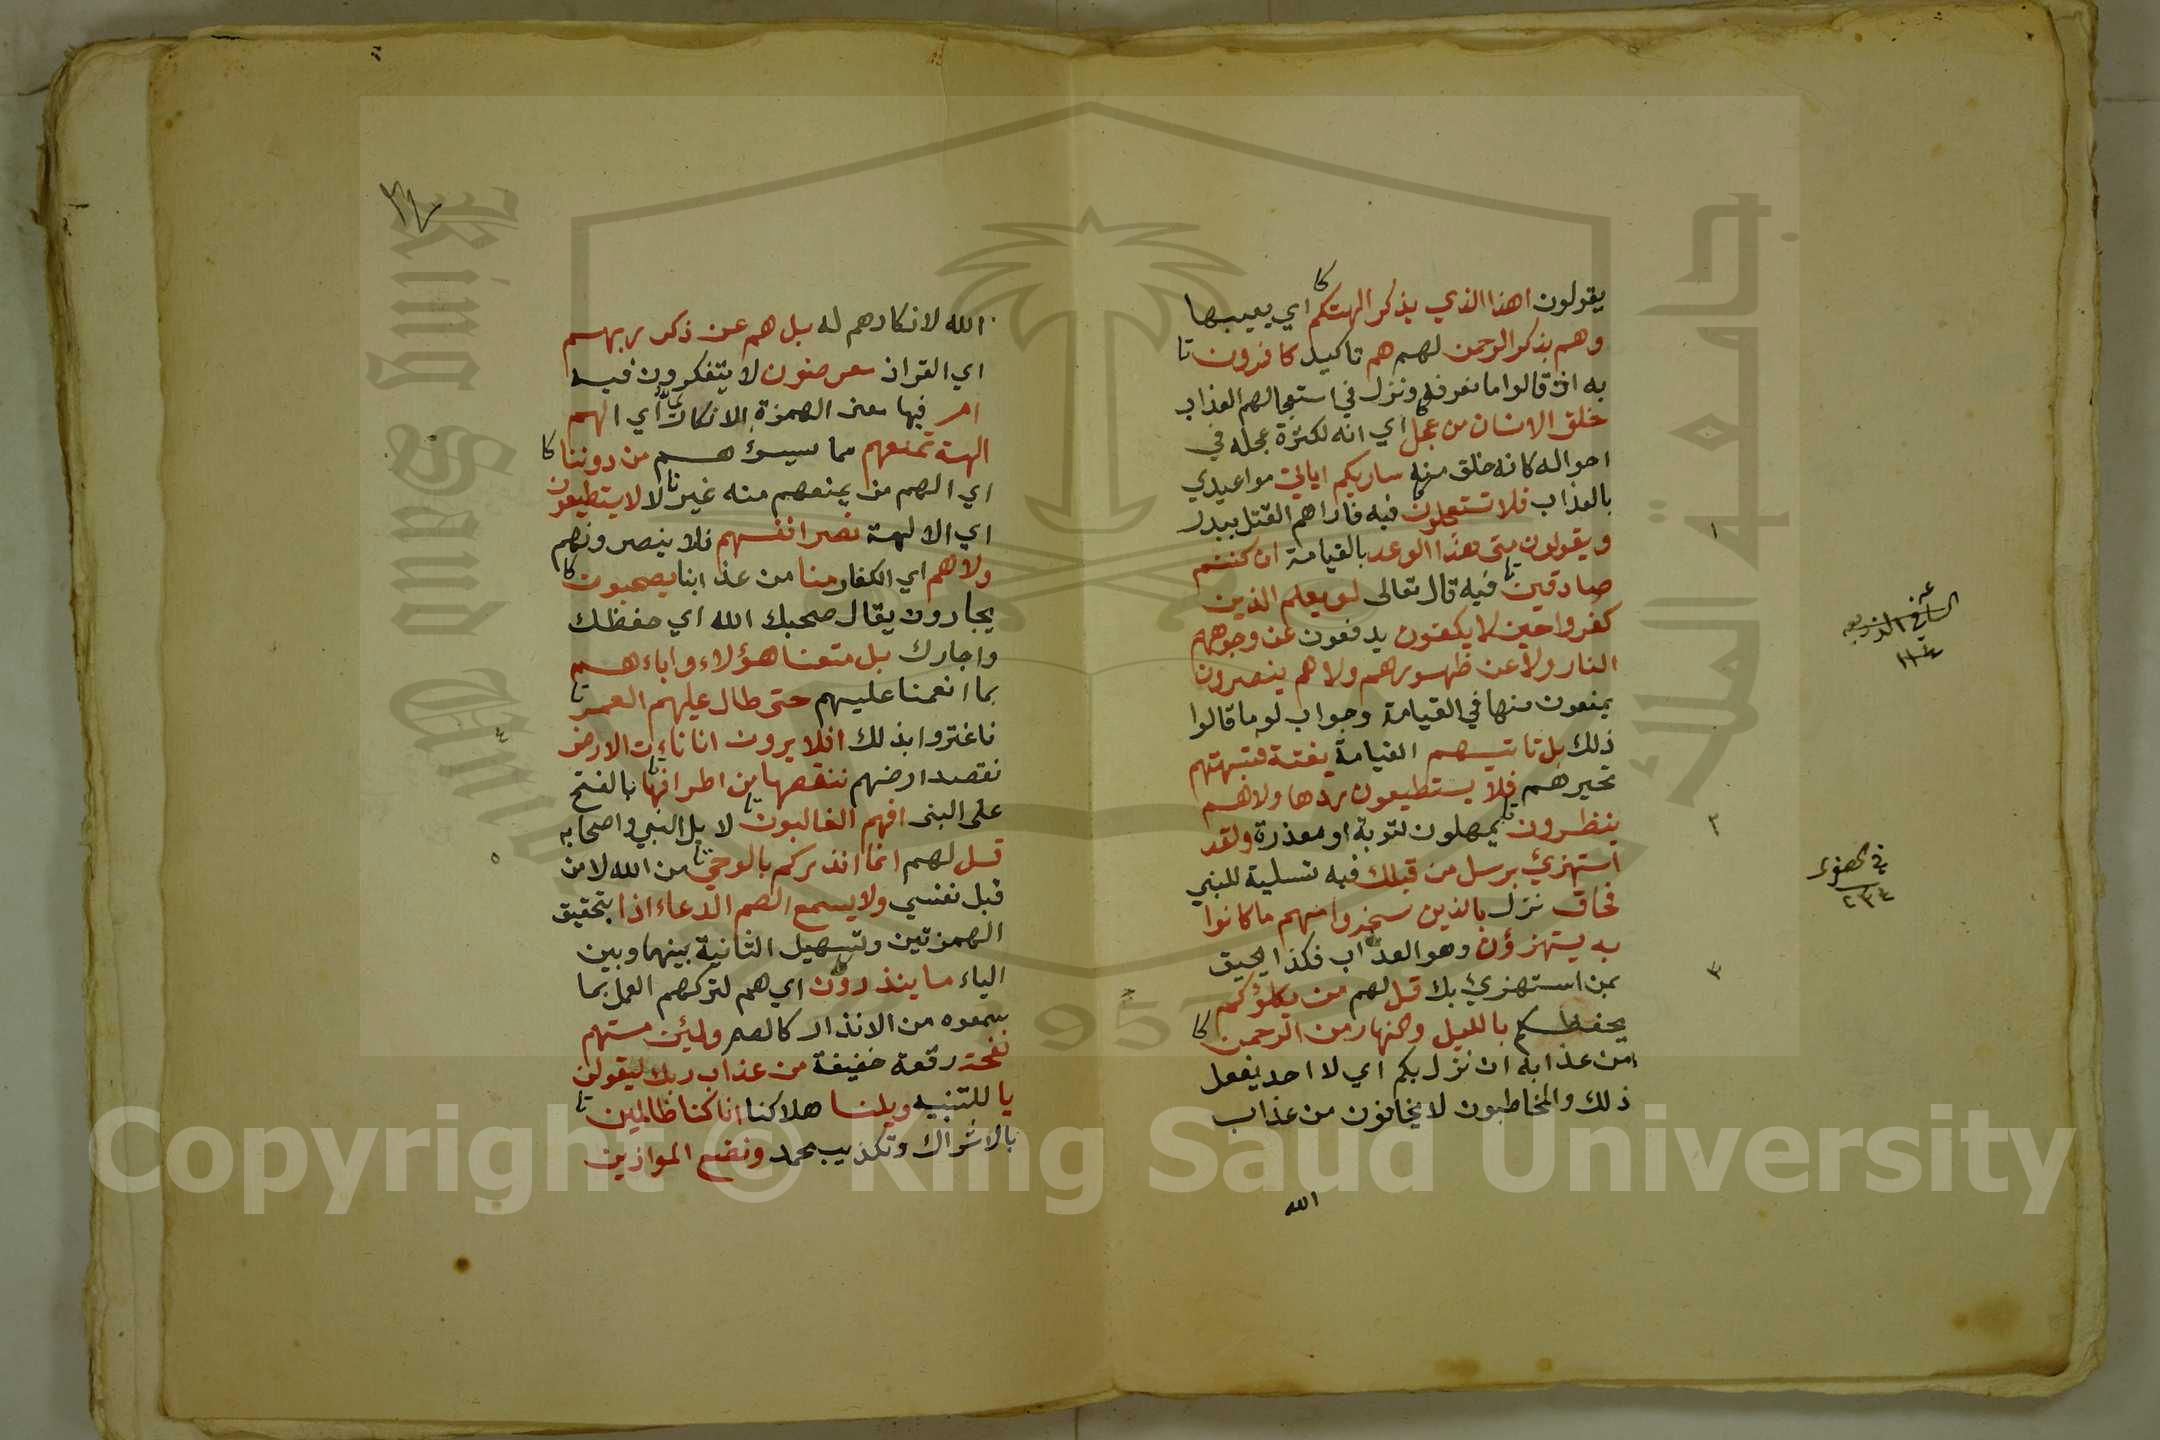 يقولون اهذا الذي يذكر الهتكم اي يعيبها
وهم بذكر الرحمن لهم هم تاكيد كافرون
به اذ قالوا ما نعرفه ونزل في استعجالهم العذاب
خلق الانسان من عجل اي انه لكثرة عجله في
احواله كانه خلق منه ساريكم اياتي مواعيدي
بالعذاب فلا تستعجلون فيه فاراهم القتل ببدر
ويقولون متى هذا الوعد بالقيامة ان كنتم
صادقين فيه قال تعالى لو يعلم الذين
كفروا حين لا يكفون يدفعون عن وجوههم
النار ولا عن ظهورهم ولا هم ينصرون
يمنعون منها في القيامة وجواب لو ما قالوا
ذلك بل تاتيهم القيامة بغتة فتبهتهم
تحيرهم فلا يستطيعون ردها ولا هم
ينظرون يمهلون لتوبة او معذرة ولقد
استهزئ برسل من قبلك فيه تسلية للنبي
فحاق نزل بالذين سخروا منهم ما كانوا
به يستهزؤن وهو العذاب فكذا يحيق
بمن استهزئ بك قل لهم من يكلؤكم
يحفظكم بالليل والنهار من الرحمن
من عذابه ان نزل بكم اي لا احد يفعل
ذلك والمخاطبون لا يخافون من عذاب
الله
الله لانكارهم له بل هم عن ذكر ربهم
اي القران معرضون لا يتفكرون فيه
ام فيها معنى الهمزة الانكاري اي الهم
الهة تمنعهم مما يسوؤهم من دوننا
اي الهم من يمنعهم منه غيرنا لا لا يستطيعون
اي الالهة نصر انفسهم فلا ينصرونهم
ولا هم اي الكفار منا من عذابنا يصحبون
يجارون يقال صحبك الله اي حفظك
واجارك بل متعنا هؤلاء واباءهم
بما انعمنا عليهم حتى طال عليهم العمر
فاغتروا بذلك افلا يرون انا ناءت الارض
نقصد ارضهم ننقصها من اطرافها بالفتح
على النبى افهم الغالبون لا بل النبي واصحابه
قل لهم انما انذركم بالوحي من الله لا من
قبل نفسي ولا يسمع الصم الدعاء اذا بتحقيق
الهمزتين وتسهيل الثانية بينها وبين
الياء ما ينذرون اي هم لتركهم العمل بما
سمعوه من الانذار كالصم ولئن مستهم
نفحة رقعة خفيفة من عذاب ربك ليقولن
يا للتنبيه ويلنا هلاكنا انا كنا ظالمين
بالاشراك وتكذيب محمد ونضع الموازين
King Saud University
جامعة الملك
1957
Copyright © King Saud University